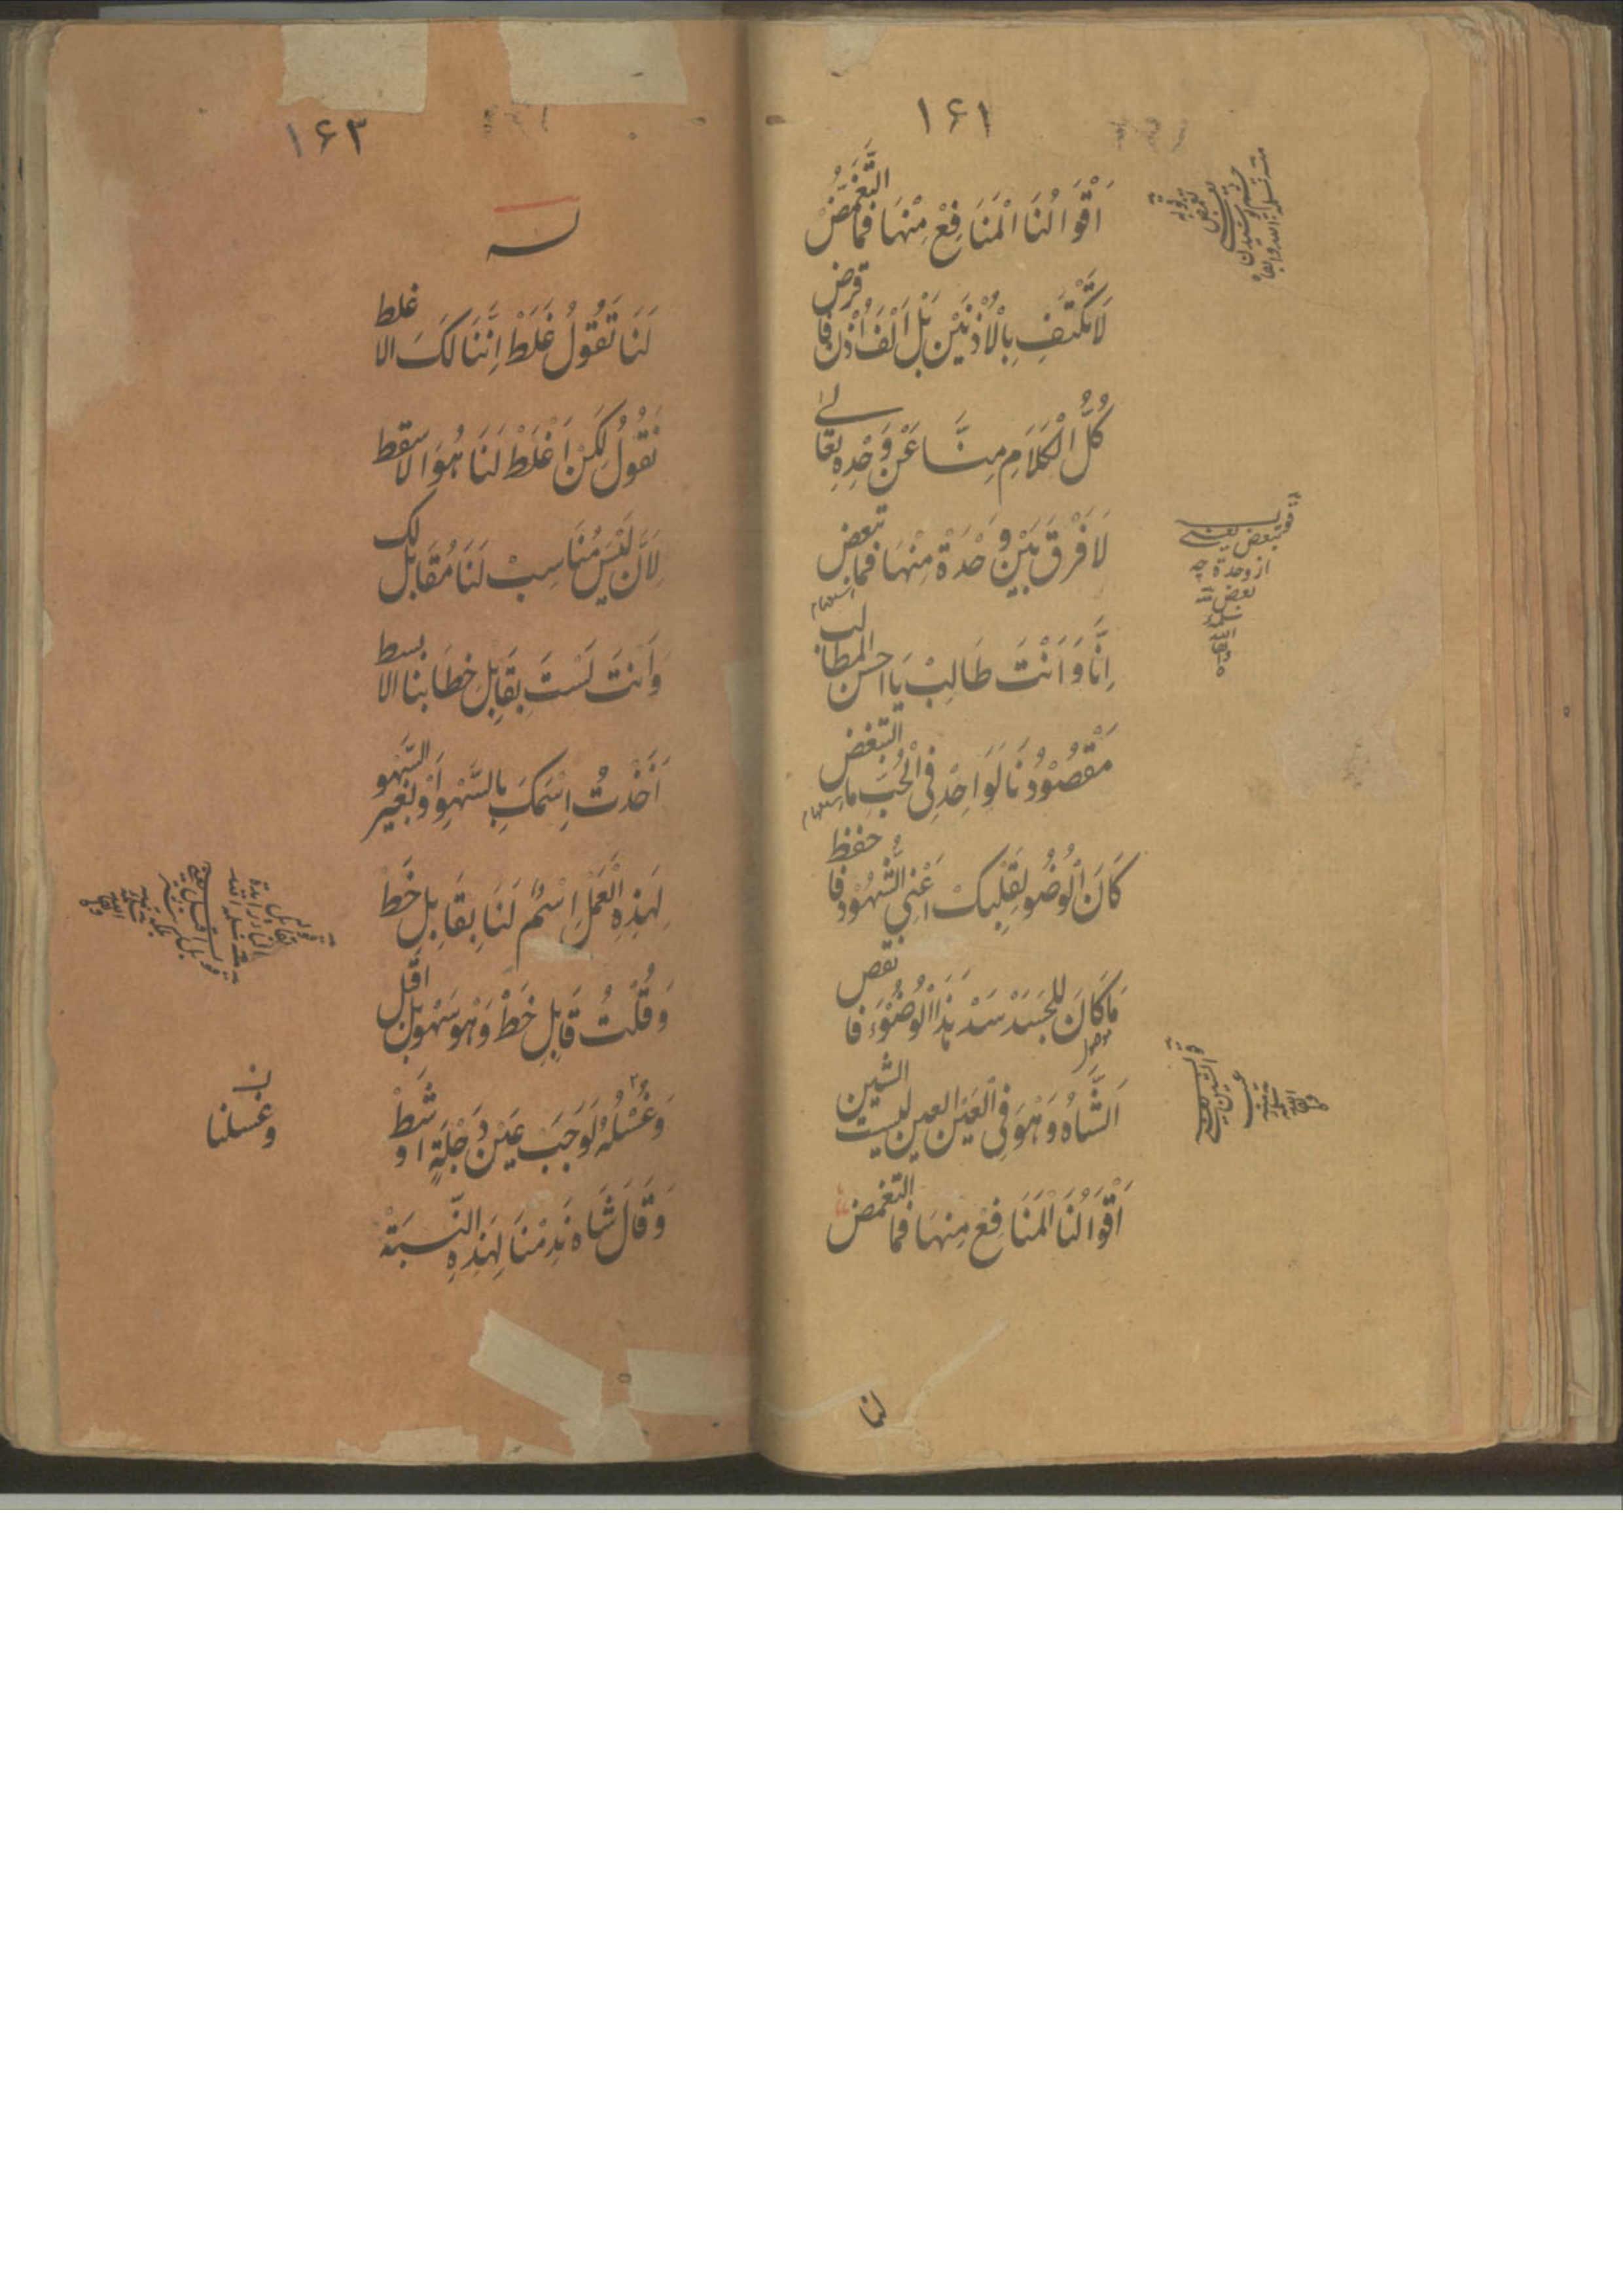 ۱۶۱
اَقْوَالُنَا الْمَنَافِعْ مِنْهَا فَمَا التَّغَمُّضْ
لَا تَكْتَفِ بِالْاُذْنَيْنِ بَلْ اَلْفَ اُذْنٍ فَاقرض
كُلُّ الْكَلَامِ مِنَّا عَنْ وَحْدِهِ تَعَالے
لَا فَرْقَ بَيْنَ وَحْدَةْ مِنْهَا فَمَا تبعض
اِنَّا وَ اَنْتَ طَالِبْ يَا احسن المطالب
مَقْصُوْدُنَا لَوَاحِدْ فِي الْحُبِّ مَا التبغض
كَانَ الْوُضُو لِقَلْبِكْ اَعْنِي الشُّهُوْد فَاحفظ
مَا كَانَ لِلْجَسَدْ سَدْ هٰذَا الْوُضُوْءَ فَانقص
اَلشَّاهُ وَهْوَ فِي الْعَيْنِ العين ليست الشين
اَقْوَالُنَا الْمَنَافِعْ مِنهَا فَمَا التغمض
لنا
قوله تبعض یعنی
از وحدة چه
بعض
۱۶۳
لــه
لَنَا تَقُولُ غَلَطْ اِنَّنَا لَكَ الا غلط
نَقُولُ لَكِنْ اَغْلَطْ لَنَا هُوَ الاسقط
لِاَنْ لَيْسَ مُنَاسِبْ لَنَا مُقَابل لك
وَاَنْتَ لَسْتَ بِقَابِلِ خِطَابنا الا بسط
اَخَذْتُ اِسْمَكَ بِالسَّهْوِ اَوْ بغير السَّهو
لِهٰذِهِ الْعَمَلْ اِسْمٌ لَنَا بِقَابل خَطْ
وَقُلْتُ قَابِلِ خَطْ وَهْوَ سَهْو بل اَقَل
وَغُسْلُهُ لَوَجَبْ عَيْنَ دَجْلَةٍ اَوْ شَطْ
وَقَالَ شَاه نَدِمْنَا لِهٰذِهِ النِّسبَتْ
ن
وغسلنا